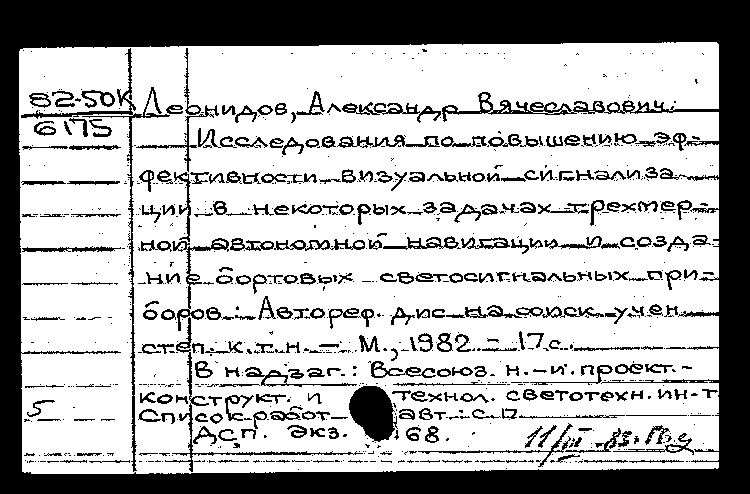 82-50К Леонидов, Александр Вячеславович.
6175
Исследования по повышению эф-
фективности визуальной сигнализа
ции в некоторых задачах трехмер-
ной автономной навигации и созда-
ние бортовых светосигнальных при-
боров : Автореф. дис на соиск учен
степ. к.т.н. - М., 1982 - 17 с.
В надзаг.: Всесоюз. н.-и. проект.-
конструкт. и технол. светотехн. ин-т.
5 Список работ авт.: с. 17.
Дсп. экз. 68. 11/III-83.